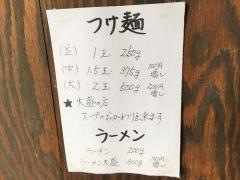 つけ麺
(並) 1玉 250g
(中) 1.5玉 375g 100円増し
(大) 2玉 500g 200円増し
★大盛の方
スープのおかわり出来ます
ラーメン
ラーメン 200g
ラーメン大盛 300g 100円増し